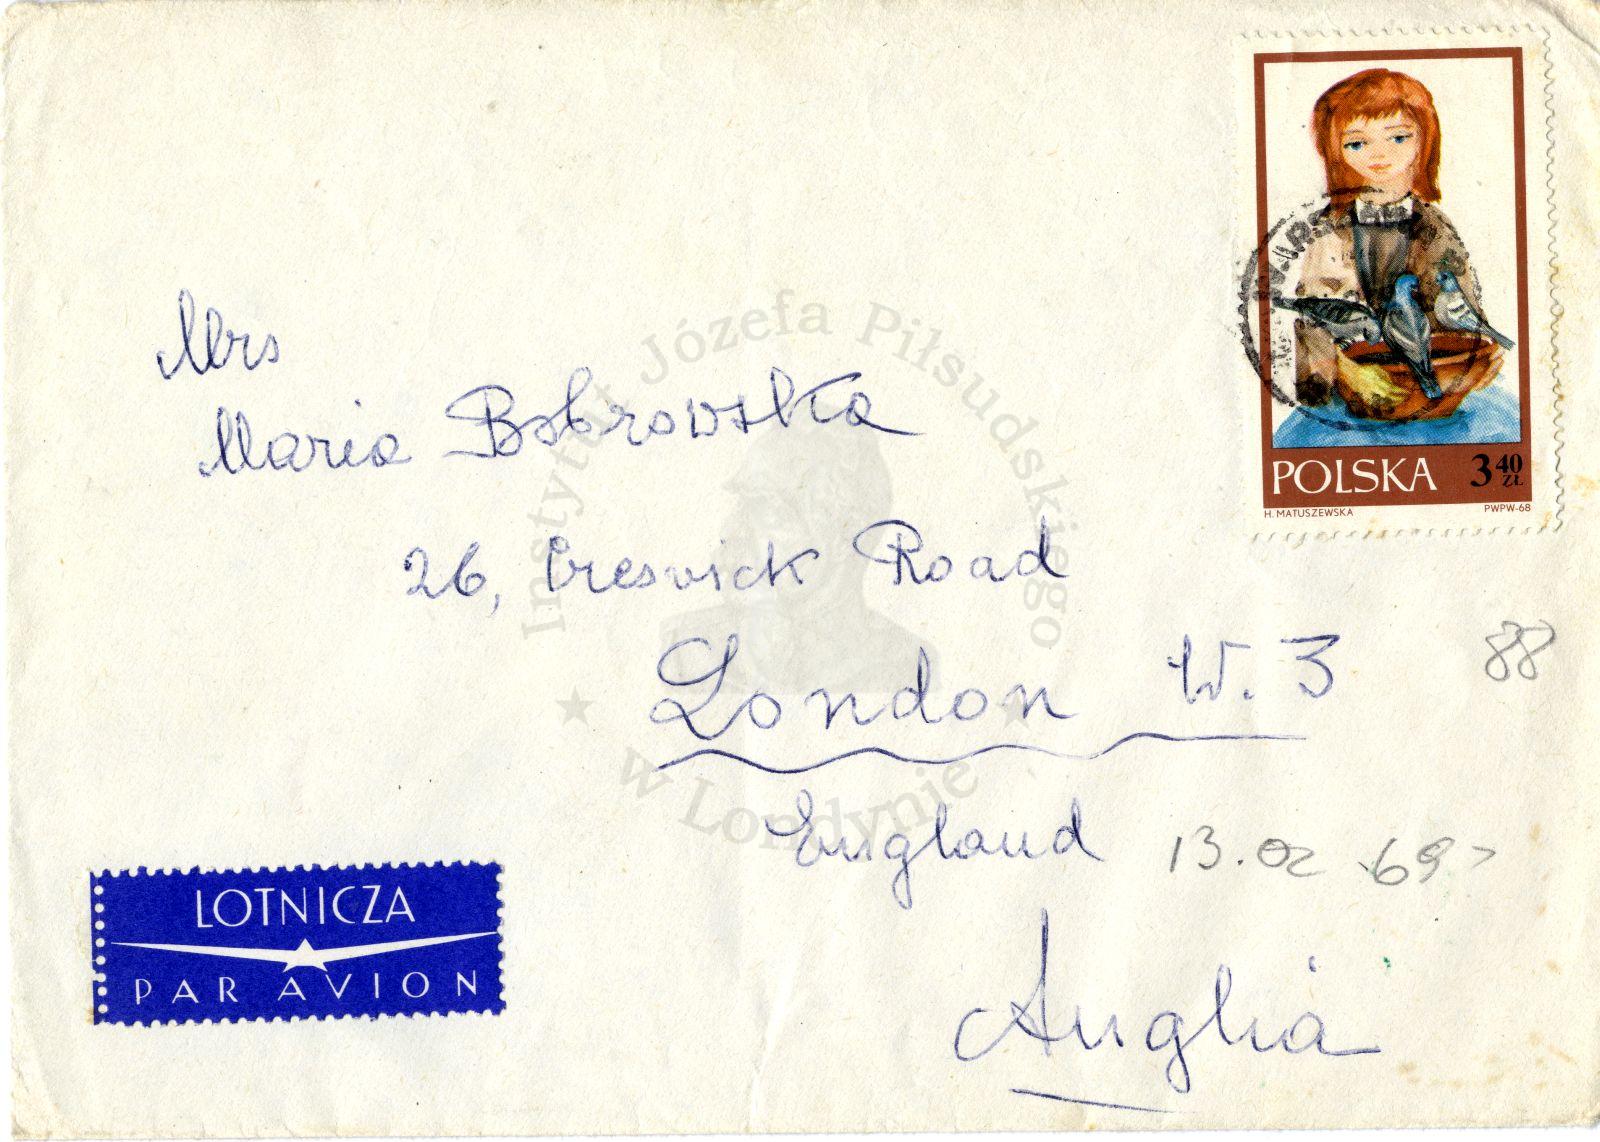 POLSKA 3 40 ZŁ
H. MATUSZEWSKA PWPW-68
WARSZAWA
Mrs
Maria Bobrowska
26, Creswick Road
London W. 3
88
England 13.02.69
Anglia
LOTNICZA
PAR AVION
Instytut Józefa Piłsudskiego
w Londynie